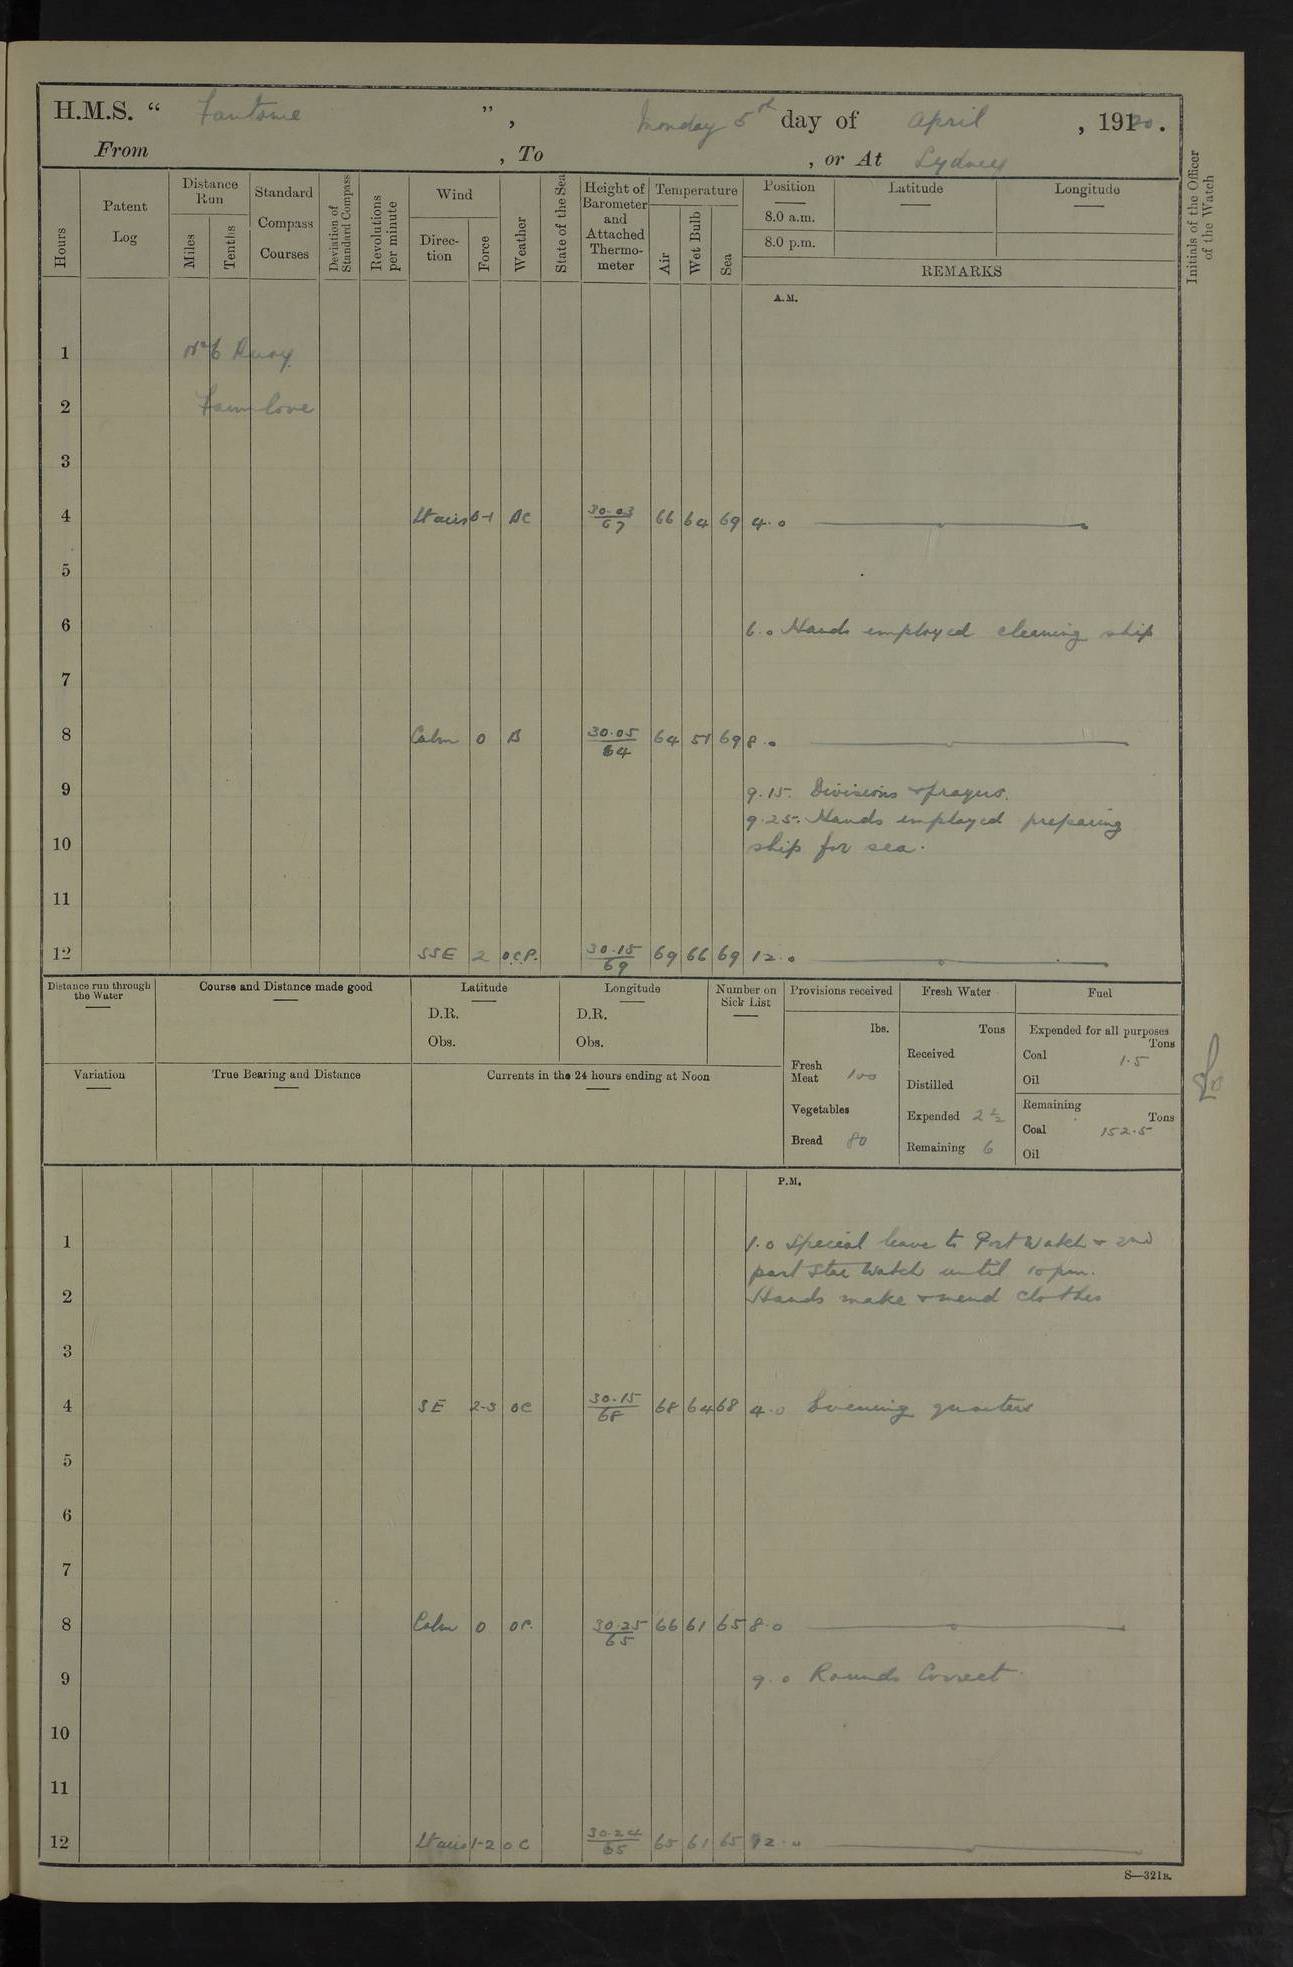 H.M.S. “ Fantome ” , Monday 5th day of April , 1920 .
From , To , or At Sydney
Hours
Patent Log
Distance Run
Miles
Tenths
Standard Compass Courses
Deviation of Standard Compass
Revolutions per minute
Wind
Direction
Force
Weather
State of the Sea
Height of Barometer and Attached Thermometer
Temperature
Air
Wet Bulb
Sea
Position Latitude Longitude
8.0 a.m.
8.0 p.m.
REMARKS
Initials of the Officer of the Watch
A.M.
1 No 6 Buoy
2 Farm Cove
3
4 Lt airs 0-1 BC 30.03/67 66 64 69 4.0
5
6 6.0 Hands employed cleaning ship
7
8 Calm 0 B 30.05/64 64 69 8.0
9 9.15. Divisions & prayers.
9.25. Hands employed preparing
10 ship for sea.
11
12 SSE 2 o.c.P. 30.15/69 69 66 69 12.0
Distance run through the Water
Course and Distance made good
Latitude
D.R.
Obs.
Longitude
D.R.
Obs.
Number on Sick List
Variation
True Bearing and Distance
Currents in the 24 hours ending at Noon
Provisions received
lbs.
Fresh Meat 100
Vegetables
Bread 80
Fresh Water
Tons
Received
Distilled
Expended 2 ½
Remaining 6
Fuel
Expended for all purposes
Tons
Coal 1.5
Oil
Remaining
Tons
Coal 152.5
Oil
P.M.
1 1.0 Special leave to Port Watch & 2nd
part Star Watch until 10 pm.
2 Hands make & mend clothes
3
4 SE 2-3 oc 30.15/68 68 64 68 4.0 Evening quarters
5
6
7
8 Calm 0 30.25/65 66 61 65 8.0
9 9.0 Rounds Correct.
10
11
12 Lt airs 1-2 oc 30.24/65 65 61 65 12.0
S—321B.